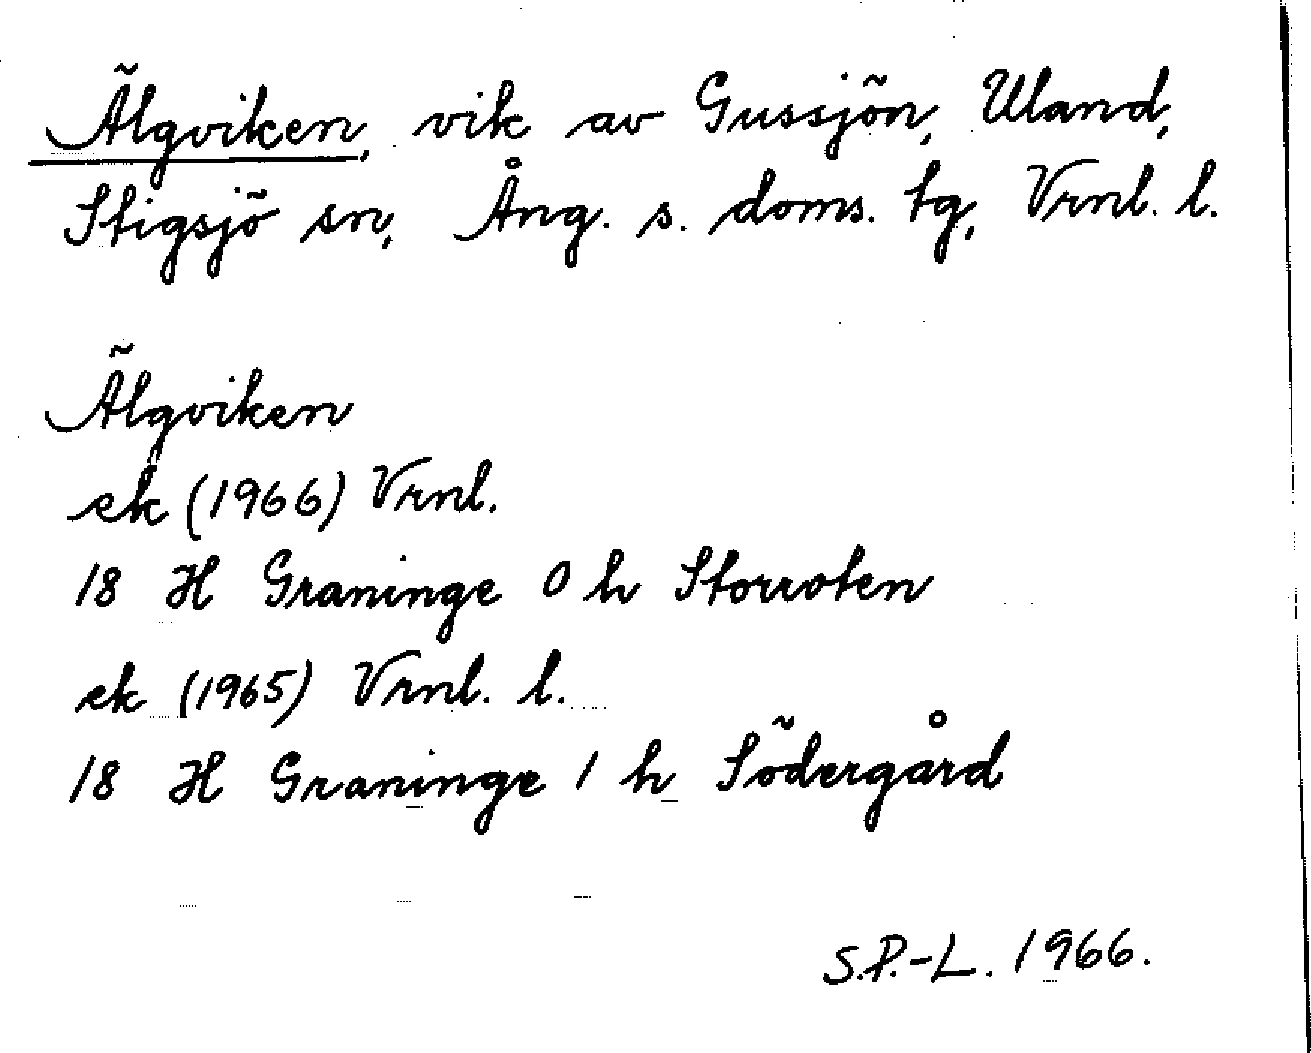 Älgviken, vik av Gussjön, Uland,
Stigsjö sn, Ång. s. doms. tg, Vrnl. l.
Älgviken
ek (1966) Vrnl.
18 H Graninge 0 h Storroten
ek (1965) Vrnl. l.
18 H Graninge 1 h Södergård
S.P.-L. 1966.